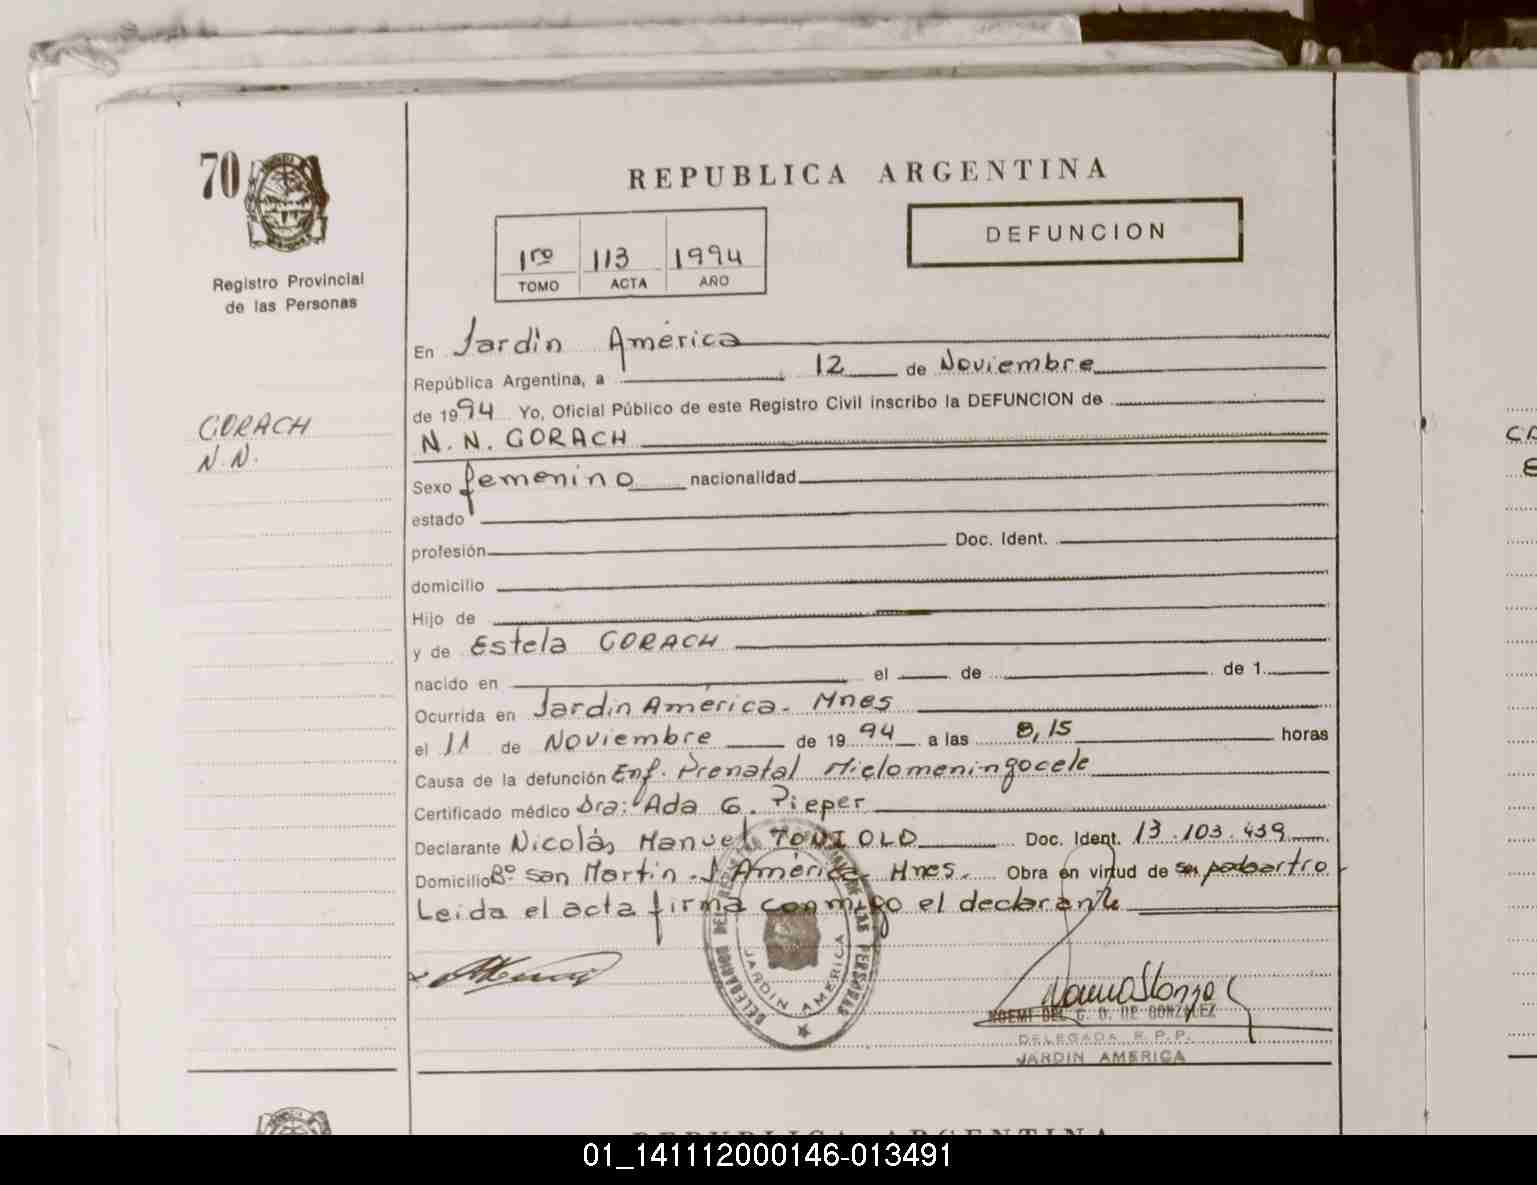 70
Registro Provincial
de las Personas
GORACH
N.N.
REPUBLICA ARGENTINA
1ro 113 1994
TOMO ACTA AÑO
DEFUNCION
En Jardín América
República Argentina, a 12 de Noviembre
de 1994 Yo, Oficial Público de este Registro Civil inscribo la DEFUNCION de
N. N. GORACH
Sexo femenino nacionalidad
estado
profesión Doc. Ident.
domicilio
Hijo de
y de Estela GORACH
nacido en el de de 1
Ocurrida en Jardín América - Mnes
el 11 de Noviembre de 1994 a las 8,15 horas
Causa de la defunción Enf. Prenatal Mielomeningocele
Certificado médico Dra: Ada G. Pieper
Declarante Nicolás Manuel TONIOLO Doc. Ident. 13.103.439
Domicilio Bº San Martín - J. América - Mnes. Obra en virtud de
Leída el acta firma conmigo el declarante
DELEGACION DEL REGISTRO DE LAS PERSONAS
JARDIN AMERICA
NOEMI DEL C. D. DE GONZALEZ
DELEGADA R.P.P.
JARDIN AMERICA
REPUBLICA ARGENTINA
01_141112000146-013491